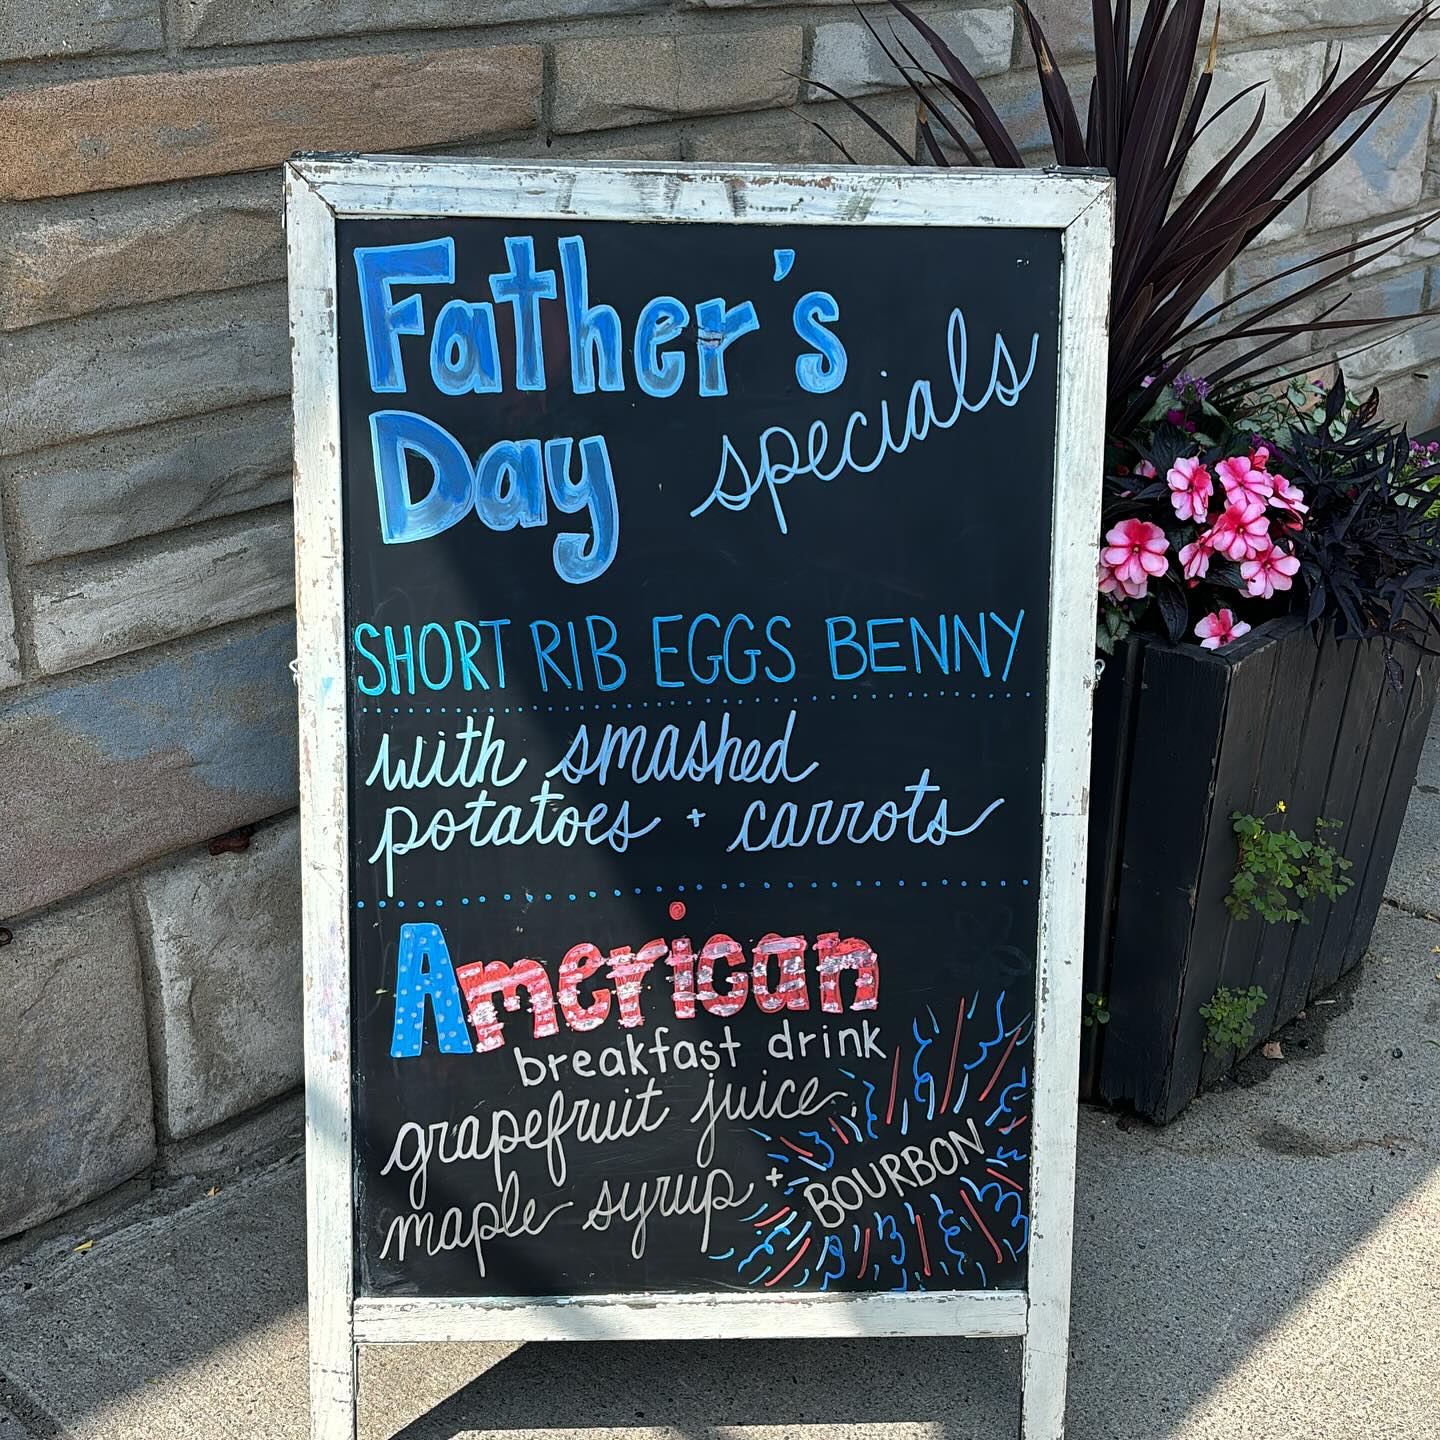 Father's
Day specials
SHORT RIB EGGS BENNY
with smashed
potatoes + carrots
American
breakfast drink
grapefruit juice,
maple syrup + BOURBON